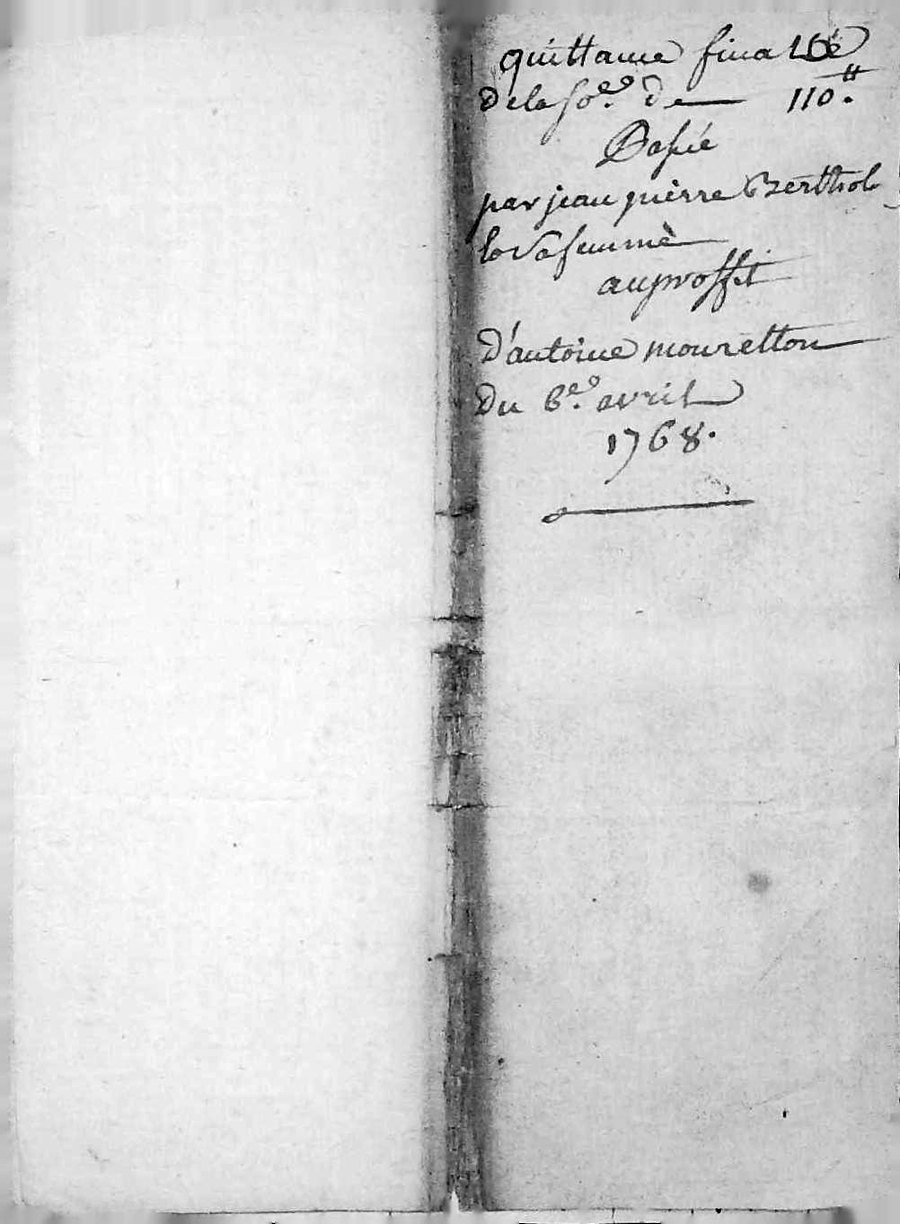 quittance finalle
de la so.e de — 110.#
Passé
par jean pierre Berthol
et sa femme
au proffit
d'antoine mouretton
Du 6.e avril
1768.